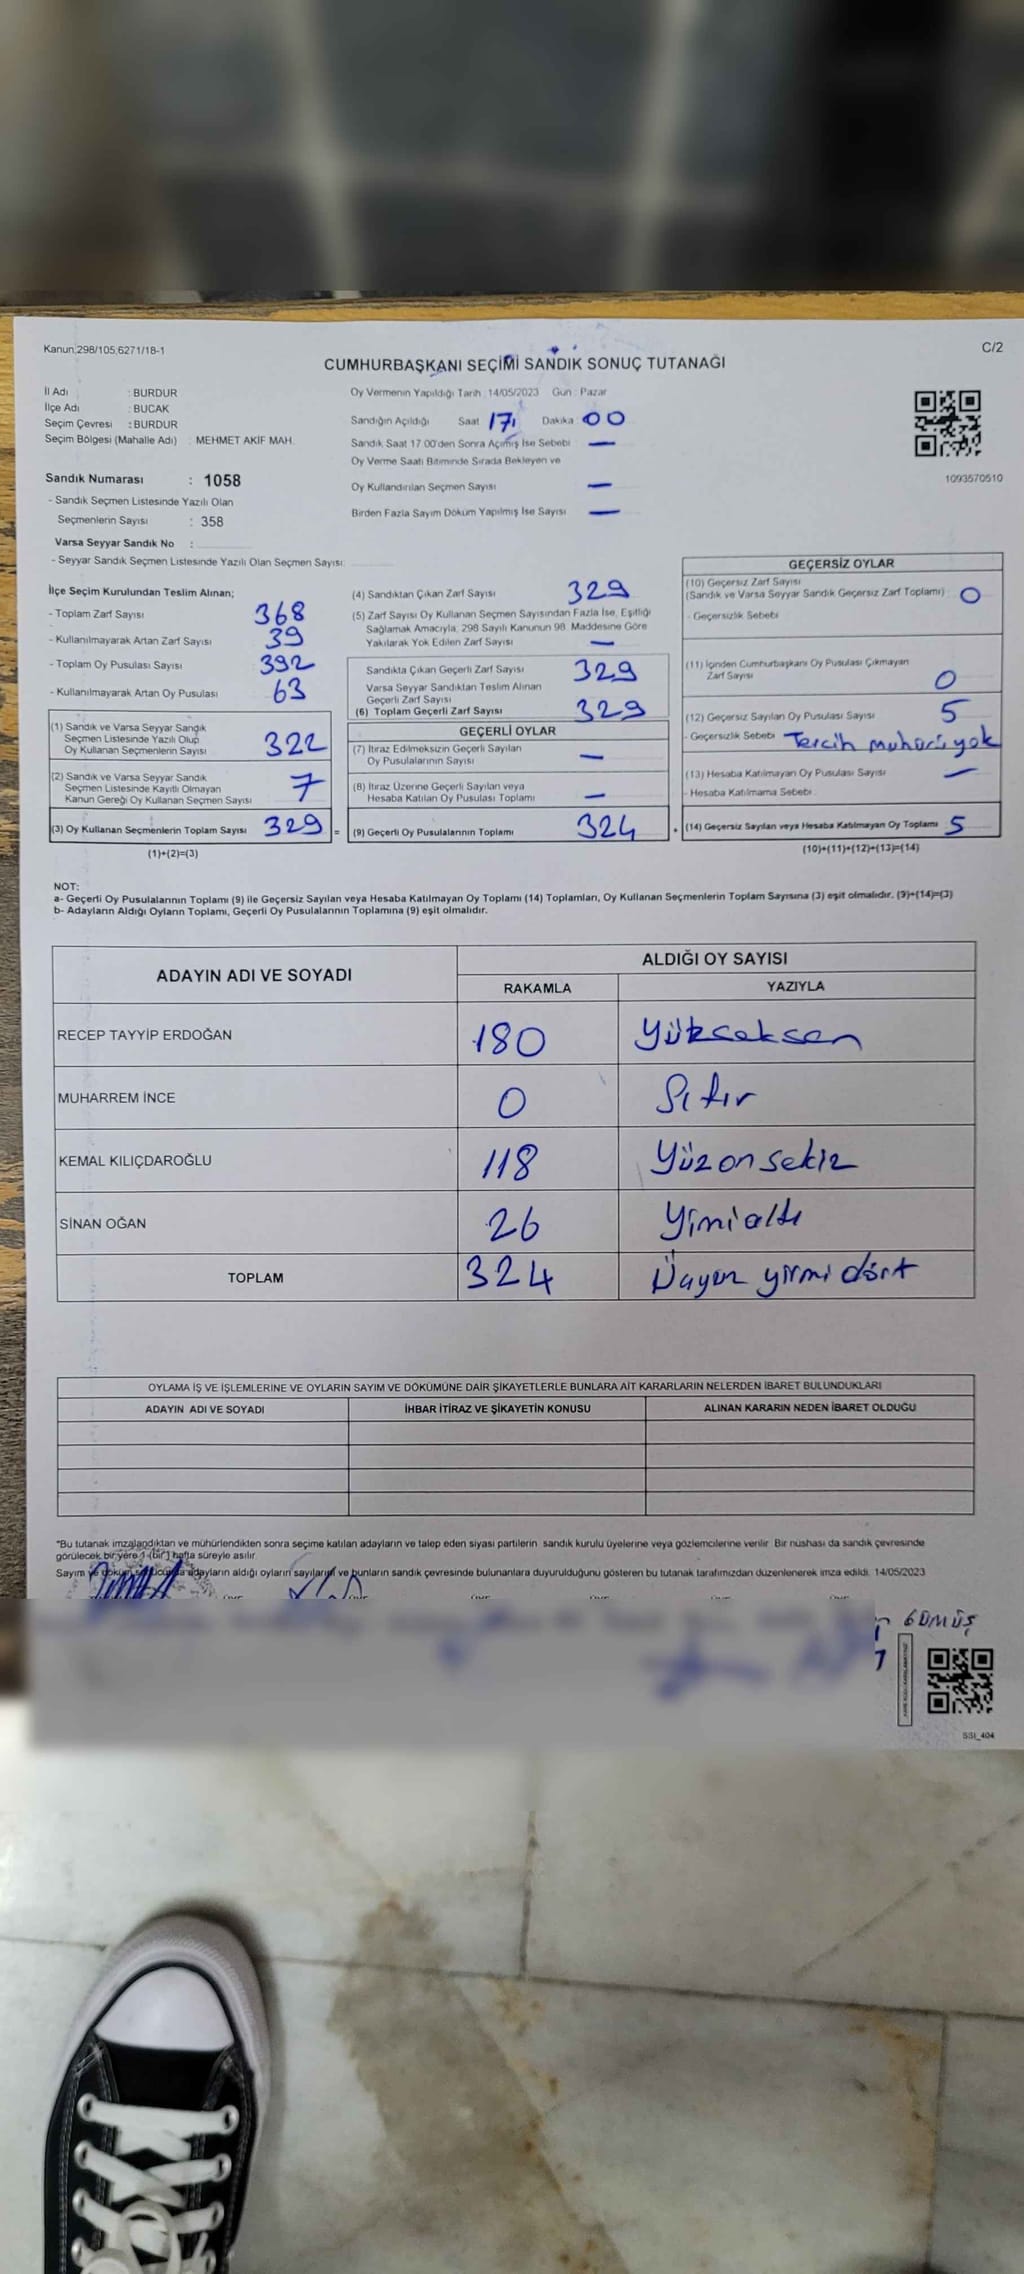 Kanun;298/105,6271/18-1
C/2
CUMHURBAŞKANI SEÇİMİ SANDIK SONUÇ TUTANAĞI
İl Adı : BURDUR
İlçe Adı : BUCAK
Seçim Çevresi : BURDUR
Seçim Bölgesi (Mahalle Adı) : MEHMET AKİF MAH.
Sandık Numarası : 1058
- Sandık Seçmen Listesinde Yazılı Olan
Seçmenlerin Sayısı : 358
Varsa Seyyar Sandık No :
- Seyyar Sandık Seçmen Listesinde Yazılı Olan Seçmen Sayısı:
Oy Vermenin Yapıldığı Tarih : 14/05/2023 Gün : Pazar
Sandığın Açıldığı Saat 17 Dakika 00
Sandık Saat 17.00'den Sonra Açılmış İse Sebebi : —
Oy Verme Saati Bitiminde Sırada Bekleyen ve
Oy Kullandırılan Seçmen Sayısı —
Birden Fazla Sayım Döküm Yapılmış İse Sayısı —
1093570510
İlçe Seçim Kurulundan Teslim Alınan;
- Toplam Zarf Sayısı 368
- Kullanılmayarak Artan Zarf Sayısı 39
- Toplam Oy Pusulası Sayısı 392
- Kullanılmayarak Artan Oy Pusulası 63
(1) Sandık ve Varsa Seyyar Sandık
Seçmen Listesinde Yazılı Olup
Oy Kullanan Seçmenlerin Sayısı 322
(2) Sandık ve Varsa Seyyar Sandık
Seçmen Listesinde Kayıtlı Olmayan
Kanun Gereği Oy Kullanan Seçmen Sayısı 7
(3) Oy Kullanan Seçmenlerin Toplam Sayısı 329 =
(1)+(2)=(3)
(4) Sandıktan Çıkan Zarf Sayısı 329
(5) Zarf Sayısı Oy Kullanan Seçmen Sayısından Fazla İse, Eşitliği
Sağlamak Amacıyla, 298 Sayılı Kanunun 98. Maddesine Göre
Yakılarak Yok Edilen Zarf Sayısı —
Sandıkta Çıkan Geçerli Zarf Sayısı 329
Varsa Seyyar Sandıktan Teslim Alınan
Geçerli Zarf Sayısı
(6) Toplam Geçerli Zarf Sayısı 329
GEÇERLİ OYLAR
(7) İtiraz Edilmeksizin Geçerli Sayılan
Oy Pusulalarının Sayısı —
(8) İtiraz Üzerine Geçerli Sayılan veya
Hesaba Katılan Oy Pusulası Toplamı —
(9) Geçerli Oy Pusulalarının Toplamı 324 +
GEÇERSİZ OYLAR
(10) Geçersiz Zarf Sayısı
(Sandık ve Varsa Seyyar Sandık Geçersiz Zarf Toplamı) : 0
- Geçersizlik Sebebi
(11) İçinden Cumhurbaşkanı Oy Pusulası Çıkmayan
Zarf Sayısı 0
(12) Geçersiz Sayılan Oy Pusulası Sayısı 5
- Geçersizlik Sebebi Tercih muhürü yok
(13) Hesaba Katılmayan Oy Pusulası Sayısı —
- Hesaba Katılmama Sebebi
(14) Geçersiz Sayılan veya Hesaba Katılmayan Oy Toplamı 5
(10)+(11)+(12)+(13)=(14)
NOT:
a- Geçerli Oy Pusulalarının Toplamı (9) ile Geçersiz Sayılan veya Hesaba Katılmayan Oy Toplamı (14) Toplamları, Oy Kullanan Seçmenlerin Toplam Sayısına (3) eşit olmalıdır. (9)+(14)=(3)
b- Adayların Aldığı Oyların Toplamı, Geçerli Oy Pusulalarının Toplamına (9) eşit olmalıdır.
ADAYIN ADI VE SOYADI
ALDIĞI OY SAYISI
RAKAMLA YAZIYLA
RECEP TAYYİP ERDOĞAN 180 Yükseksen
MUHARREM İNCE 0 Sıfır
KEMAL KILIÇDAROĞLU 118 Yüzonsekiz
SİNAN OĞAN 26 Yimialtı
TOPLAM 324 yirmi dört
OYLAMA İŞ VE İŞLEMLERİNE VE OYLARIN SAYIM VE DÖKÜMÜNE DAİR ŞİKAYETLERLE BUNLARA AİT KARARLARIN NELERDEN İBARET BULUNDUKLARI
ADAYIN ADI VE SOYADI İHBAR İTİRAZ VE ŞİKAYETİN KONUSU ALINAN KARARIN NEDEN İBARET OLDUĞU
*Bu tutanak imzalandıktan ve mühürlendikten sonra seçime katılan adayların ve talep eden siyasi partilerin sandık kurulu üyelerine veya gözlemcilerine verilir. Bir nüshası da sandık çevresinde
görülecek bir yere 1 (bir) hafta süreyle asılır
Sayım ve döküm adayların aldığı oyların sayılarını ve bunların sandık çevresinde bulunanlara duyurulduğunu gösteren bu tutanak tarafımızdan düzenlenerek imza edildi. 14/05/2023
GÜMÜŞ
SSI_404